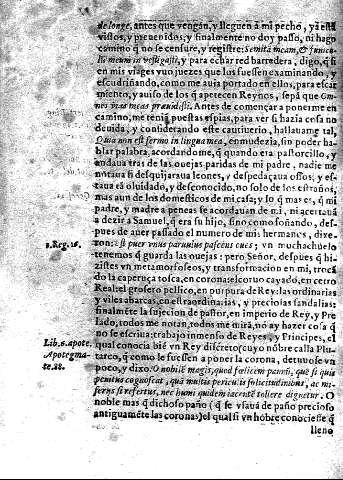 de longe, antes que vengan, y lleguen à mi pecho, yà està
vistos, y preuenidos; y finalmente no doy passo, ni hago
camino q̃ no se censure, y registre: Semitã meam, & funicu
meum inuestigasti, y para echar red barredera, digo, q̃ si
en mis viages vuo juezes que los fuessen examinando, y
escudriñando, como me auia portado en ellos, para escar
miẽto, y auiso de los q̃ apetecen Reynos, sepà que Om-
nes vias meas præuidisti. Antes de començar a ponerme en
camino, me tenia puestas espias, para ver si hazia cosa no
deuida, y considerando este cautiuerio, hallauame tal,
Quia non est sermo in lingua mea, enmudezia, sin poder ha-
blar palabra, acordando me, q̃ quando era pastorcillo, y
andaua tras de las ouejas, paridas de mi padre, nadie me
notaua si desquijaraua leones, y despedaçaua ossos; y es-
taua tà oluidado, y desconocido, no solo de los estraños,
mas aun de los domesticos de mi casa; y lo q̃ mas es, q̃ mi
padre, y madre a penas se acordauan de mi, ni acertauà
a dezir a Samuel, q̃ era su hijo, sino como soñando, des-
pues de auer passado el numero de mis hermanos, dixe-
1.Reg.16. ron: est puer vnus paruulus pascens oues; vn muchachuelo
tenemos q̃ guarda las ouejas: pero Señor, despues q̃ hi-
zistes vn metamorfoseos, y transformacion en mi, trocà
do la caperuça tosca, en corona: el coruo cayado, en cetro
Real: el grosero pellico, en purpura de Rey: las ordinarias
y viles abarcas, en estraordinarias, y preciosas sandalias:
finalmẽte la sujecion de pastor, en imperio de Rey, y Pre
lado, todos me notan, todos me mirã, no ay hazer cosa q̃
no se escriua: trabajo inmenso de Reyes, y Principes, el
Lib.6.apote. qual conocia biẽ vn Rey discreto (cuyo nõbre calla Plu-
Apotegma- tarco, q̃ como le fuessen a poner la corona, detuuose vn
te.28. poco, y dixo. O nobilẽ magis, quã fœlicem pannũ, quẽ si quis
penitus cognoscat, quã multis periculis sollicitudinibus, ac mi-
serijs sit refertus, nec humi quidem iacentẽ tollere dignetur. O
noble mas q̃ dichoso paño (q̃ se vsauà de paño precioso
antiguamẽte las coronas) el qual si vn hõbre conociesse q̃
lleno